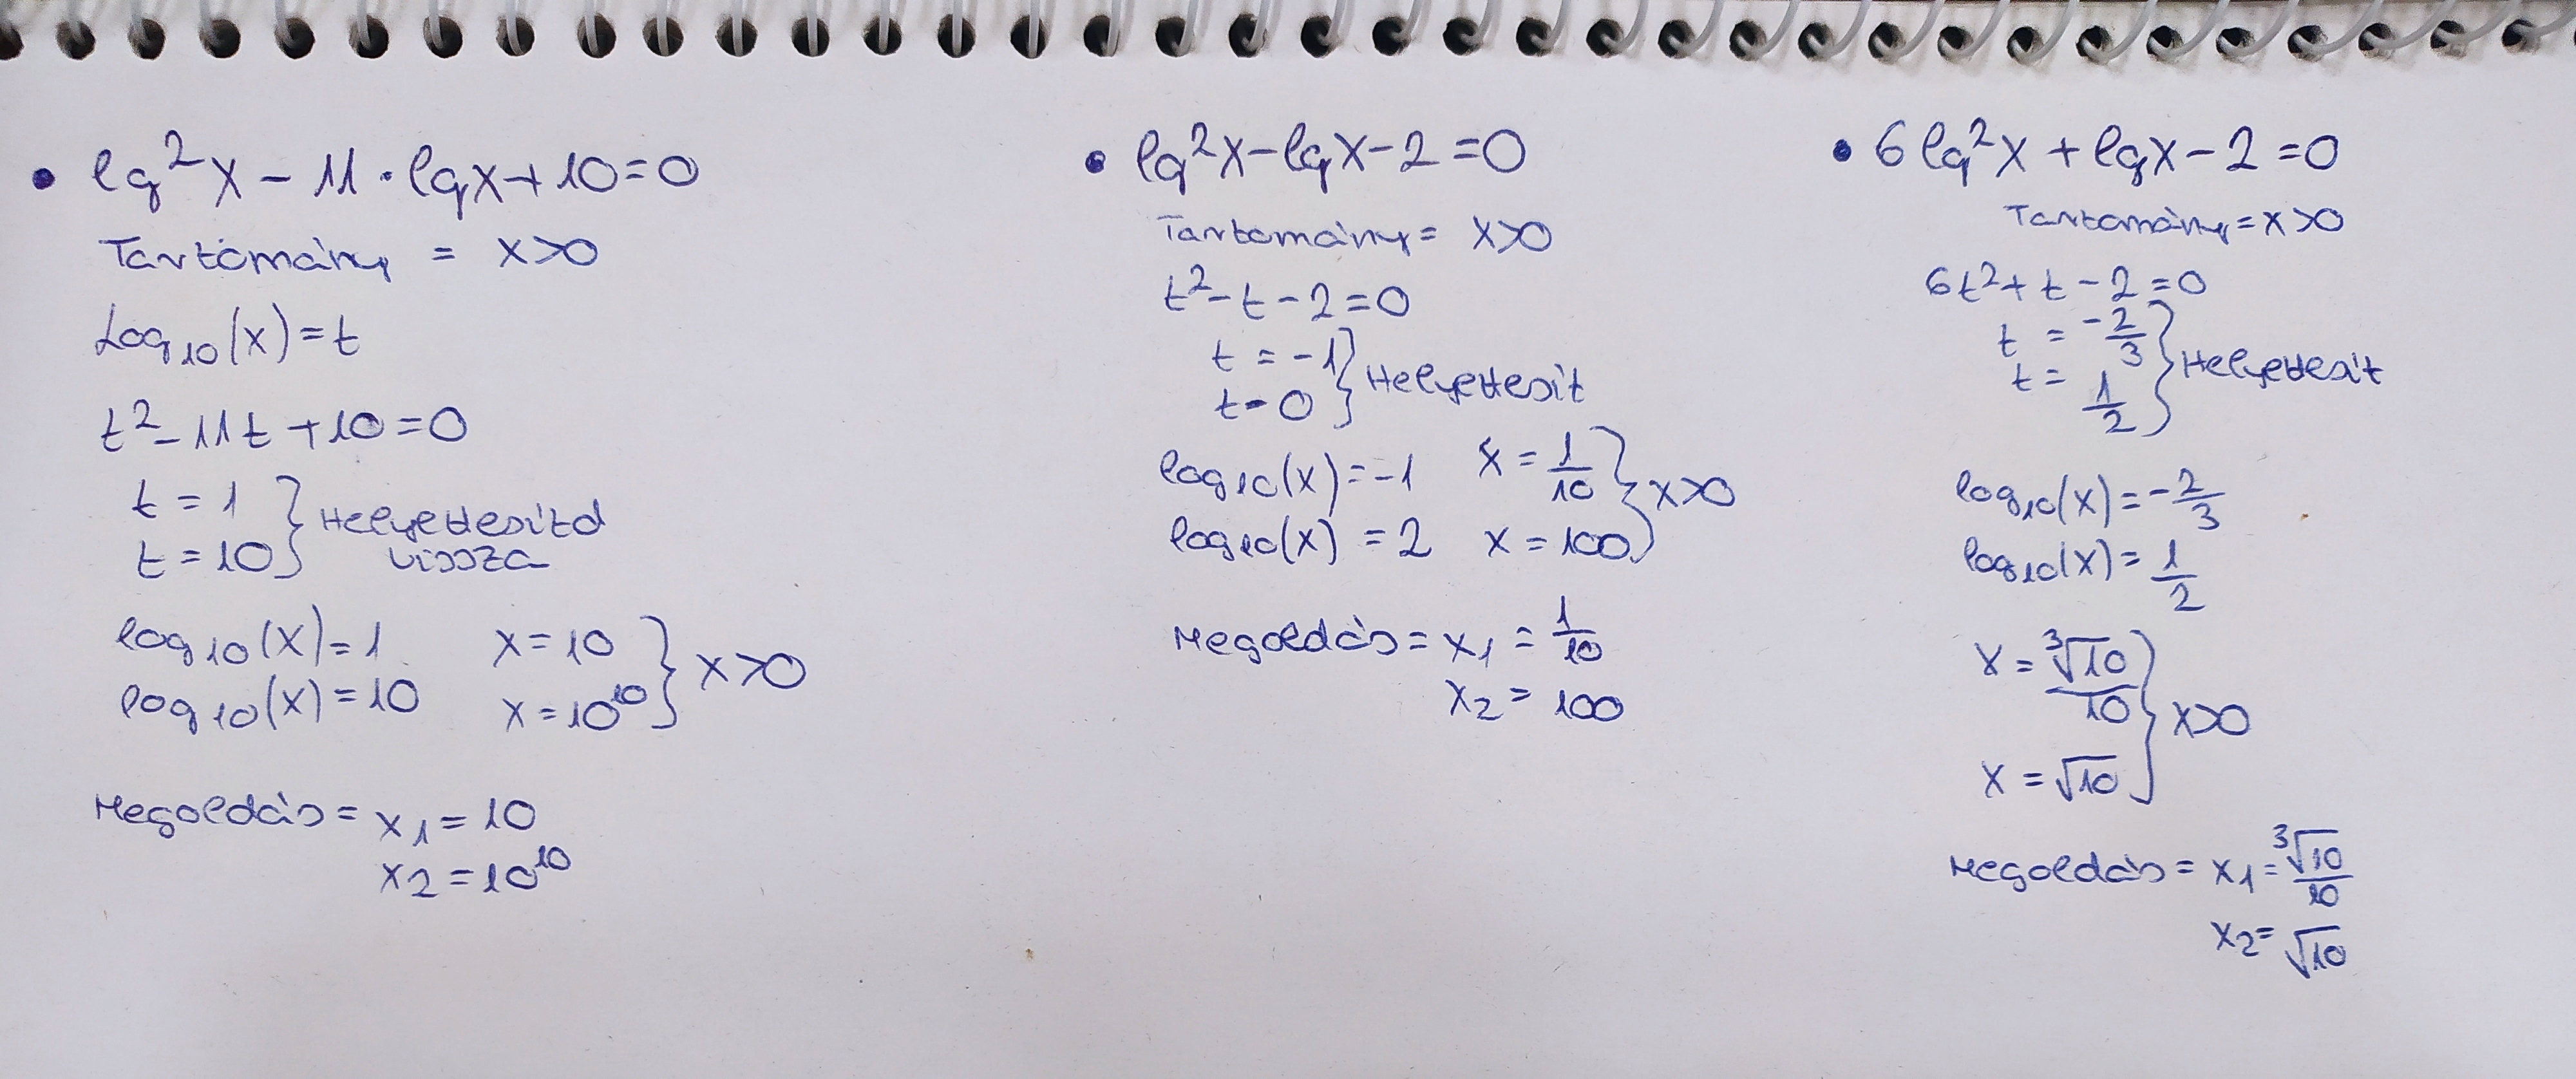 • lg²x - 11·lgx + 10 = 0
Tartomány = x>0
Log₁₀(x) = t
t² - 11t + 10 = 0
t = 1
t = 10 } Helyettesítd
vissza
log₁₀(x) = 1 x = 10
log₁₀(x) = 10 x = 10¹⁰ } x>0
Megoldás = x₁ = 10
x₂ = 10¹⁰
• lg²x - lgx - 2 = 0
Tartomány = x>0
t² - t - 2 = 0
t = -1
t = 0 } Helyettesít
log₁₀(x) = -1 x = 1/10
log₁₀(x) = 2 x = 100 } x>0
Megoldás = x₁ = 1/10
x₂ = 100
• 6lg²x + lgx - 2 = 0
Tartomány = x>0
6t² + t - 2 = 0
t = -2/3
t = 1/2 } Helyettesít
log₁₀(x) = -2/3
log₁₀(x) = 1/2
x = ³√10/10
x = √10 } x>0
Megoldás = x₁ = ³√10/10
x₂ = √10